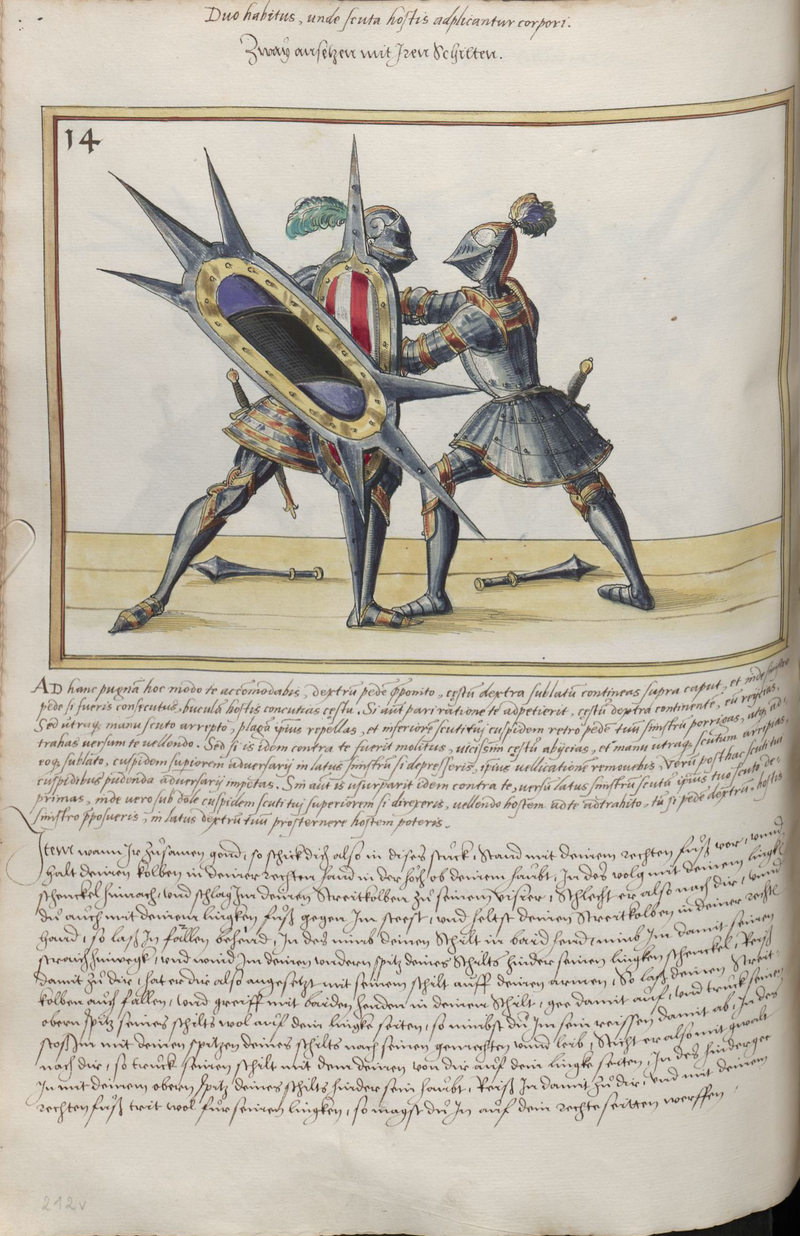 Duo habitus, unde scuta hostis adplicantur corpori.
Zway ansetzen mit Iren Schilten.
14
AD hanc pugnã hoc modo te accõmodabis, dextrũ pedẽ p̃ponito, cestũ dextra sublatũ contineas supra caput, et inde sinistro
pede si fueris consecutus, buculã hostis concutias cestu. Si aũt pari ratione te adpetierit, cestũ dextra continente, eũ reycias,
Sed utraq; manu scuto arrepto, plagã ipius repellas, et inferiorẽ scuti tui cuspidem retro pedẽ tuũ sinistrũ porrigas, atq; ad
trahas versum te vellendo. Sed si is idem contra te fuerit molitus, vicissim cestũ abycias, et manu utraq; scutum arripias,
eoq; sublato, cuspidem supiorem adversarij in latus sinistrũ si depresseris, ipius vellicationẽ removebis. Verũ post hac scuti tui
cuspidibus pudenda adversarij impetas. Sin aũt is usurparit idem contra te, versũ latus sinistrũ scutũ ipius tuo scuto de-
primas, inde vero sub dole cuspidem scuti tui superiorem si direxeris, vellendo hostem ad te adtrahito, tu si pede dextrũ hostis
sinistro p̃posueris, in latus dextrũ tuũ prosternere hostem poteris.
Item wann Ir zusamen gond, so schick dich also in dises stuck, Stand mit deinem rechten fuß vor, unnd
halt deinen kolben in deiner rechten hand in der höch ob deinem haubt, In des volg mit deinem lingken
schenckel hinnach, und schlag Im deinen Streitkolben zu seinem visier, Schlecht er also nach dir, unnd
du auch mit deinem lingken fuß gegen Im steest, und heltst deinen Streitkolben in deiner rechten
hand, so laß In fallen behend, In des nimb deinen Schilt in baid hend, nimb Im damit seinen
straich hinwegk, und wind Im deinen undern spitz deines Schilts hinder seinen lingken schenckel, Reiß
damit zu dir, hat er dir also angesetzt mit seinem schilt auff deinen armen, So laß deinen Streit-
kolben auch fallen, und greiff mit baiden henden in deinen Schilt, gee damit auf, und truck seinen
obern spitz seines schilts wol auf dein lingke seiten, so nimbst du Im sein reissen damit ab, In des
stoss In mit deinen spitzen deines schilts nach seinen gemechten unnd leib, Sticht er also mit gwalt
nach dir, so truck seinen schilt mit dem deinen von dir auf dein lingke seiten, In des hindergee
In mit deinem obern spitz deines schilts hinder sein haubt, Reiß In damit zu dir, und mit deinem
rechten fuß trit wol für seinen lingken, so magst du In auf dein rechte seitten werffen.
212v